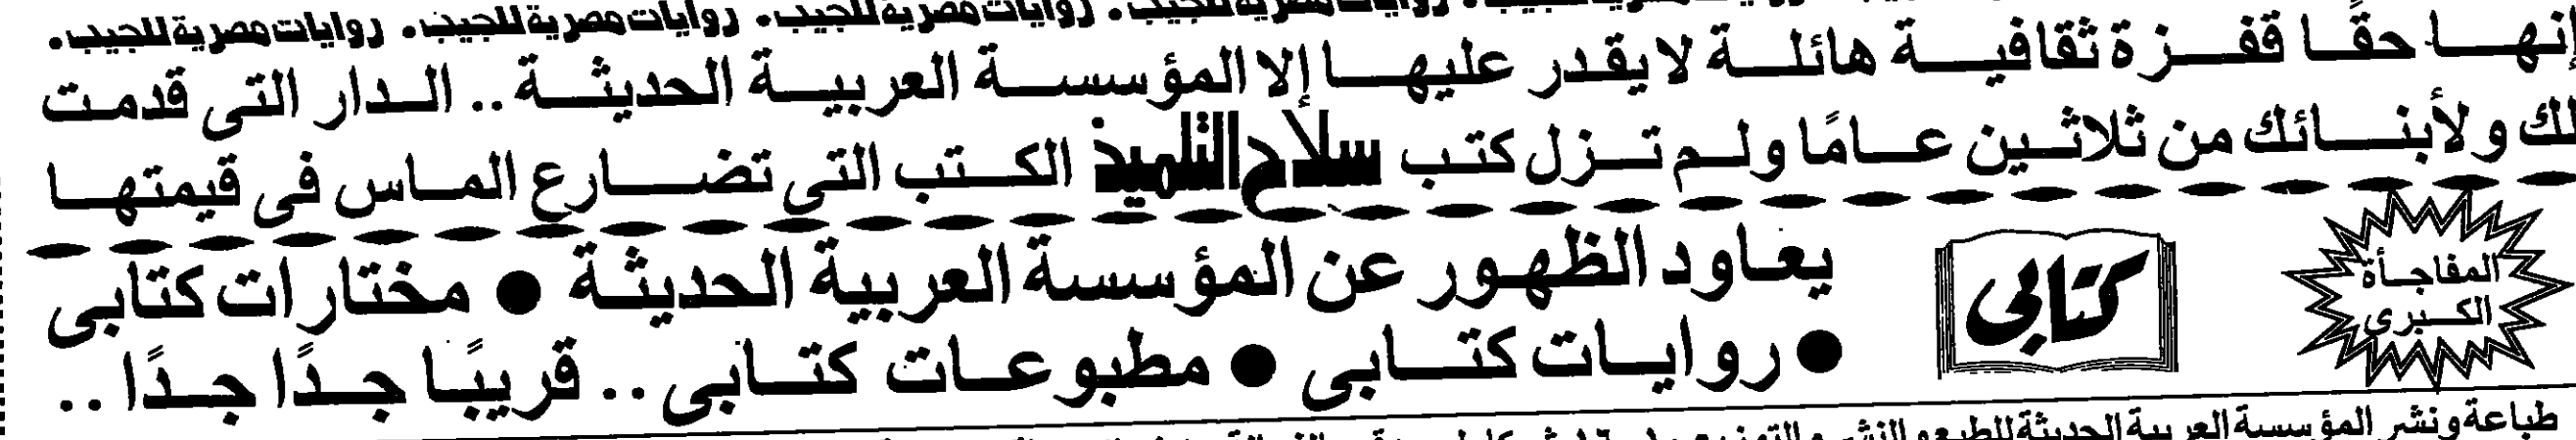 روايات مصرية للجيب. روايات مصرية للجيب. روايات مصرية للجيب. روايات مصرية للجيب.
إنها حقًا قفزة ثقافية هائلة لا يقدر عليها إلا المؤسسة العربية الحديثة .. الدار التى قدمت
لك ولأبنائك من ثلاثين عامًا ولم تزل كتب سلاح التلميذ الكتب التى تضارع الماس فى قيمتها
المفاجأة
الكبرى
كتابى
يعاود الظهور عن المؤسسة العربية الحديثة ● مختارات كتابى
● روايات كتابى ● مطبوعات كتابى .. قريبًا جدًا جدًا ..
طباعة ونشر المؤسسة العربية الحديثة للطبع والنشر والتوزيع